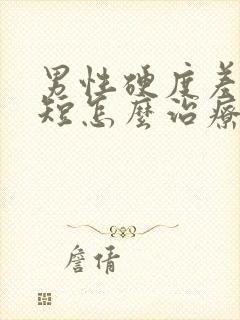 男性硬度差
短怎麼治療
詹倩